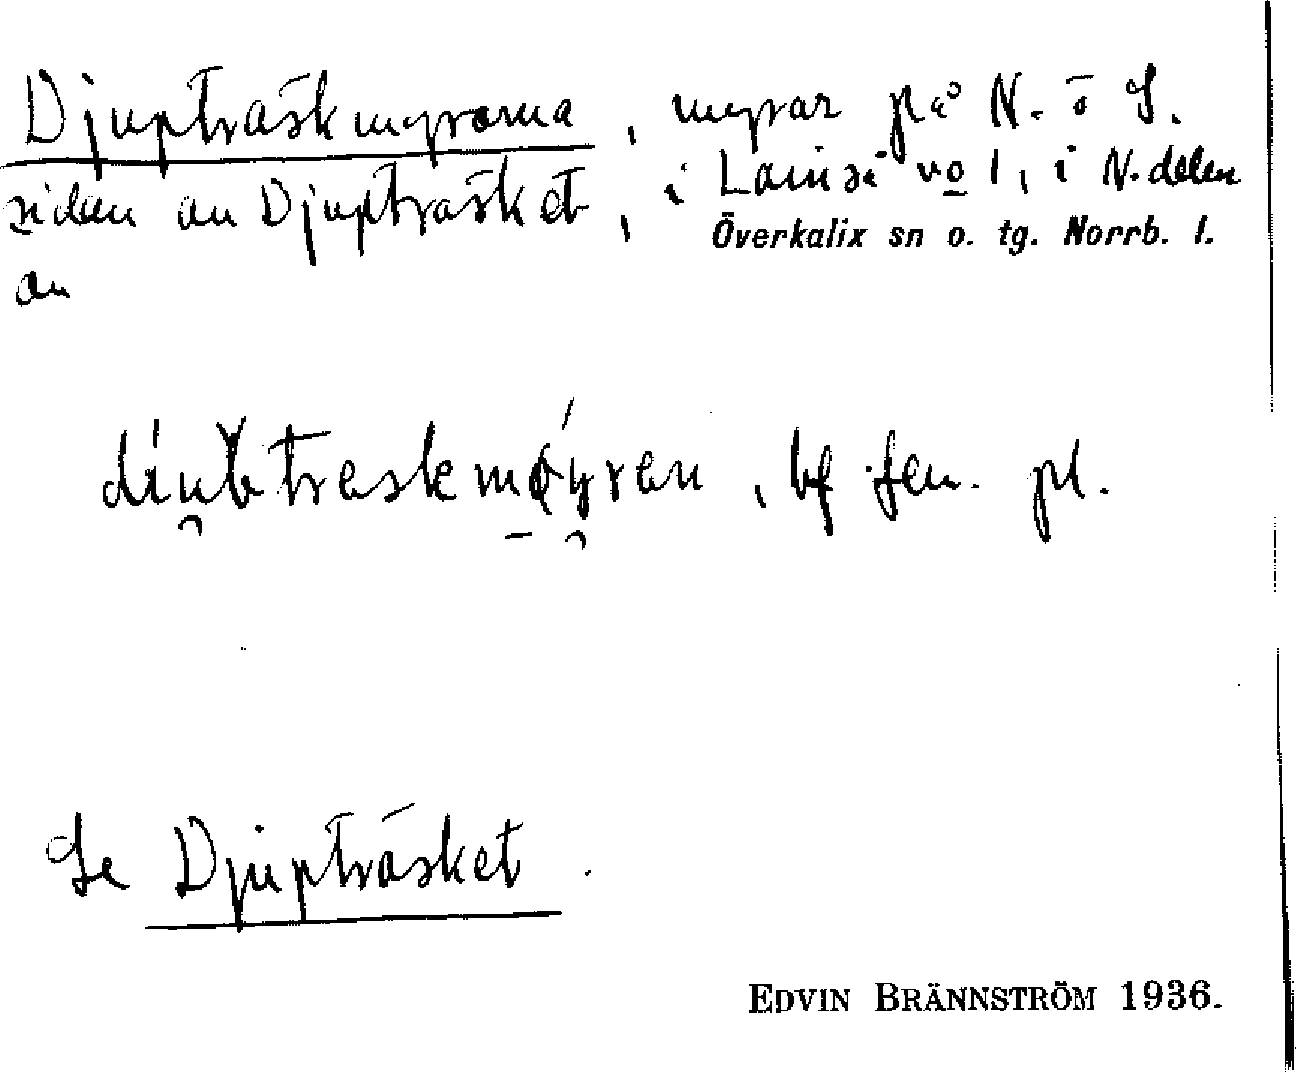 Djupträskmyrarna, myrar på N. o S.
sidan av Djupträsket, i Lanså vo 1, i N. delen
av Överkalix sn o. tg. Norrb. l.
diubtreskmøyren, bf fem. pl.
Se Djupträsket.
EDVIN BRÄNNSTRÖM 1936.